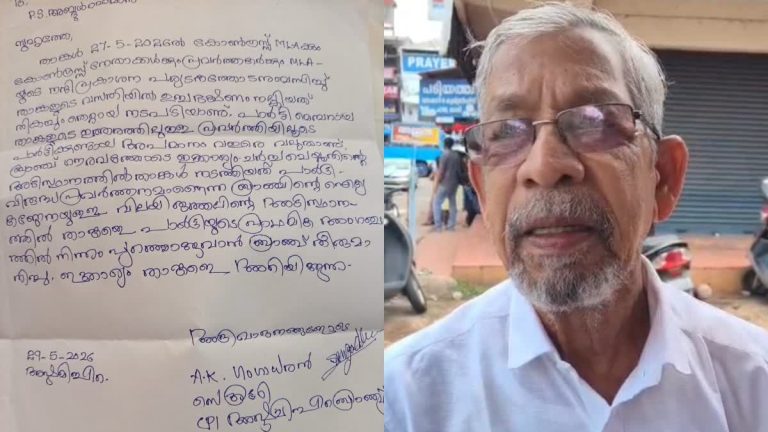 P.S. അബ്ദുൾറഹ്മാൻ
സുഹൃത്തേ,
താങ്കൾ 27-5-2026ൽ കോൺഗ്രസ്സ് MLAക്കും
കോൺഗ്രസ്സ് നേതാക്കൾക്കും പ്രവർത്തകർക്കും MLA-
യുടെ നന്ദിപ്രകാശന പര്യടനത്തോടനുബന്ധിച്ച്
താങ്കളുടെ വസതിയിൽ ഉച്ചഭക്ഷണം നല്കിയത്
തികച്ചും തെറ്റായ നടപടിയാണ്. പാർട്ടി മെമ്പറായ
താങ്കളുടെ ഇത്തരത്തിലുള്ള പ്രവർത്തിയിലൂടെ
പാർട്ടിക്കുണ്ടായ അപമാനം വളരെ വലുതാണ്.
ബ്രാഞ്ച് ഗൗരവത്തോടെ ഇക്കാര്യം ചർച്ച ചെയ്തതിന്റെ
അടിസ്ഥാനത്തിൽ താങ്കൾ നടത്തിയത് പാർട്ടി-
വിരുദ്ധപ്രവർത്തനമാണെന്ന ബ്രാഞ്ചിന്റെ ഐക്യ
കണ്ഠേനയുള്ള വിലയിരുത്തലിന്റെ അടിസ്ഥാന-
ത്തിൽ താങ്കളെ പാർട്ടിയുടെ പ്രാഥമിക അംഗത്വ-
ത്തിൽ നിന്നും പുറത്താക്കുവാൻ ബ്രാഞ്ച് തീരുമാ
നിച്ചു. ഇക്കാര്യം താങ്കളെ അറിയിക്കുന്നു.
അഭിവാദനങ്ങളോടെ
29-5-2026
A.K. ഗംഗാധരൻ
സെക്രട്ടറി
CPI
PRAYER